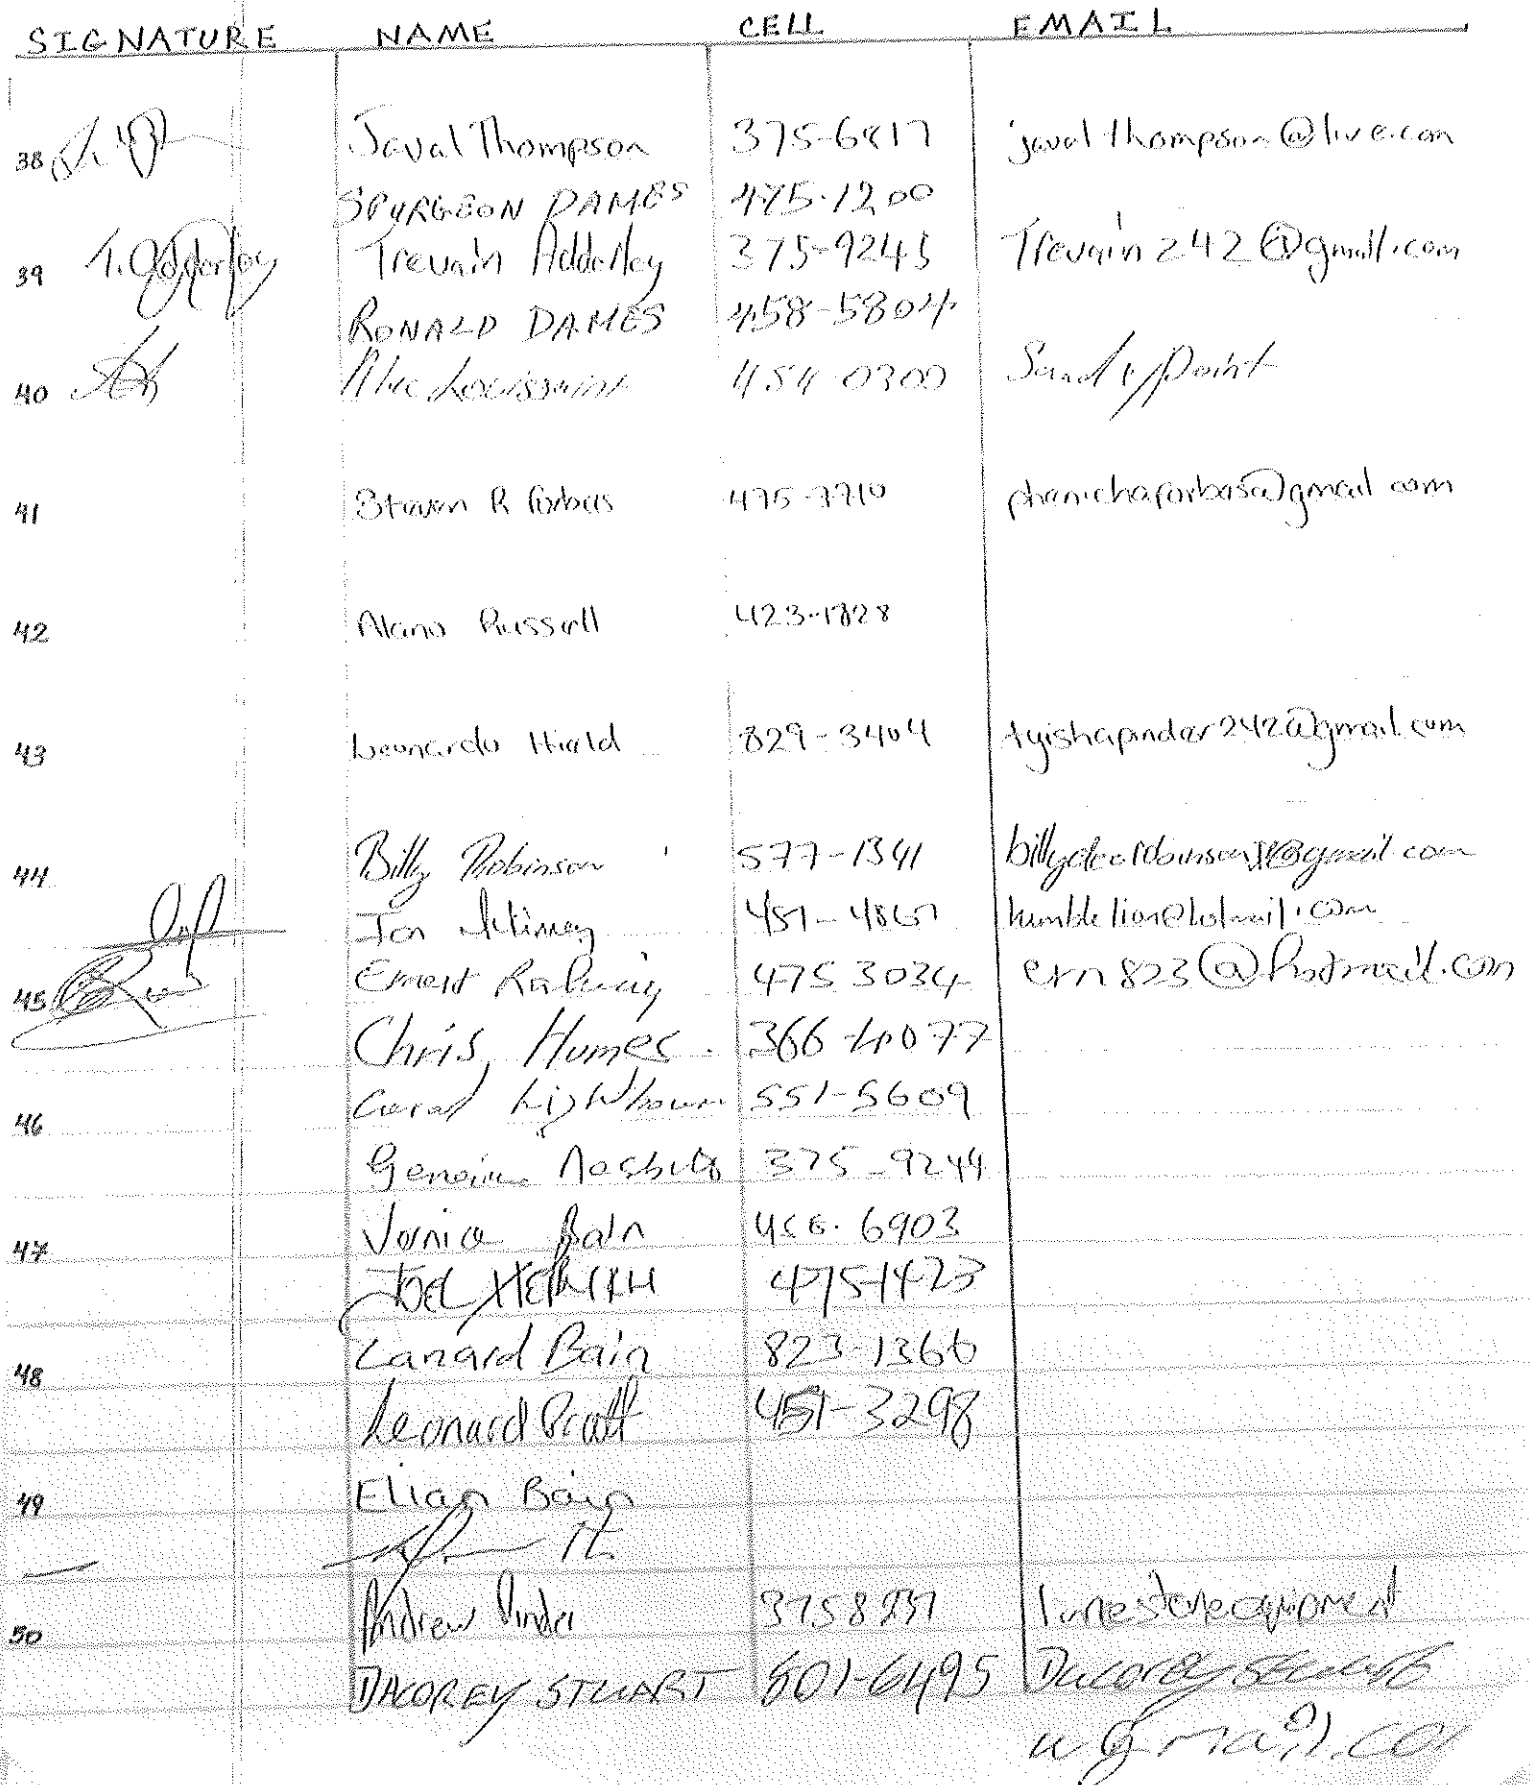 SIGNATURE NAME CELL EMAIL
38 Javal Thompson 375-6817 javalthompson@live.com
SPURGEON DAMES 475-1200
39 T. Adderley Trevain Adderley 375-9245 Trevain242@gmail.com
RONALD DAMES 458-5804
40 454-0300 Sandy Point
41 Steven R Forbes 475-7710 phenichaforbes@gmail com
42 Alano Russell 423-1828
43 Leonardo Hield 829-3404 tyishapinder242@gmail.com
44 Billy Robinson 577-1341
Ion 457-4867 humblelion@hotmail.com
45 Ernest 475 3034 ern823@hotmail.com
Chris Humes 366-4077
46 Lightbourn 551-5609
375-9244
47 Vernice Bain 456-6903
JOEL 475-1423
48 Lanard Bain 823-1366
Leonard Pratt 451-3298
49 Elian Bain
50 Andrew Pinder 375 8937 limestoneequipment
DACOREY STUART 801-6495 Dacorey
gmail.com